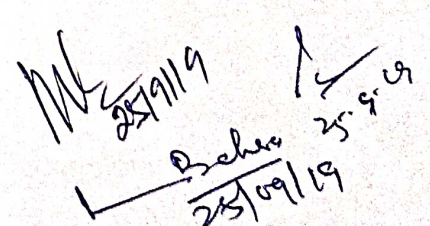 25/9/19
25.9.19
Behera
25/09/19